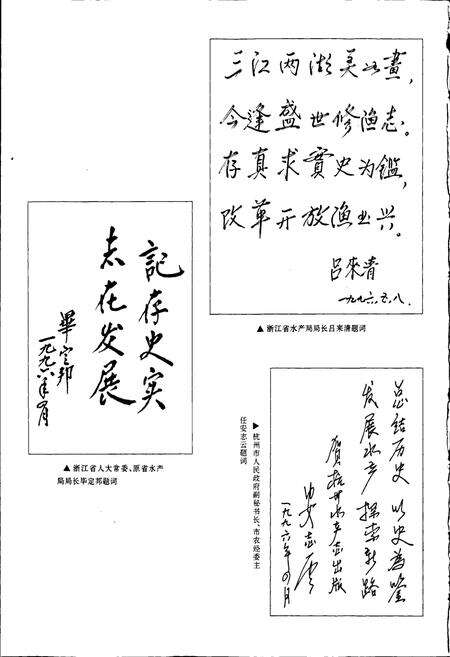 三江两湖美如畫，
今逢盛世修渔志。
存真求實史为鑑，
改革开放渔业兴。
吕来清
一九九六.五.八.
▲浙江省水产局局长吕来清题词
記存史实
志在发展
畢定邦
一九九六年 月
▲浙江省人大常委、原省水产
局局长毕定邦题词
总结历史 以史为鉴
发展水产 探索新路
贺杭州水产志出版
安志云
一九九六年 月
▲杭州市人民政府副秘书长、市农经委主
任安志云题词